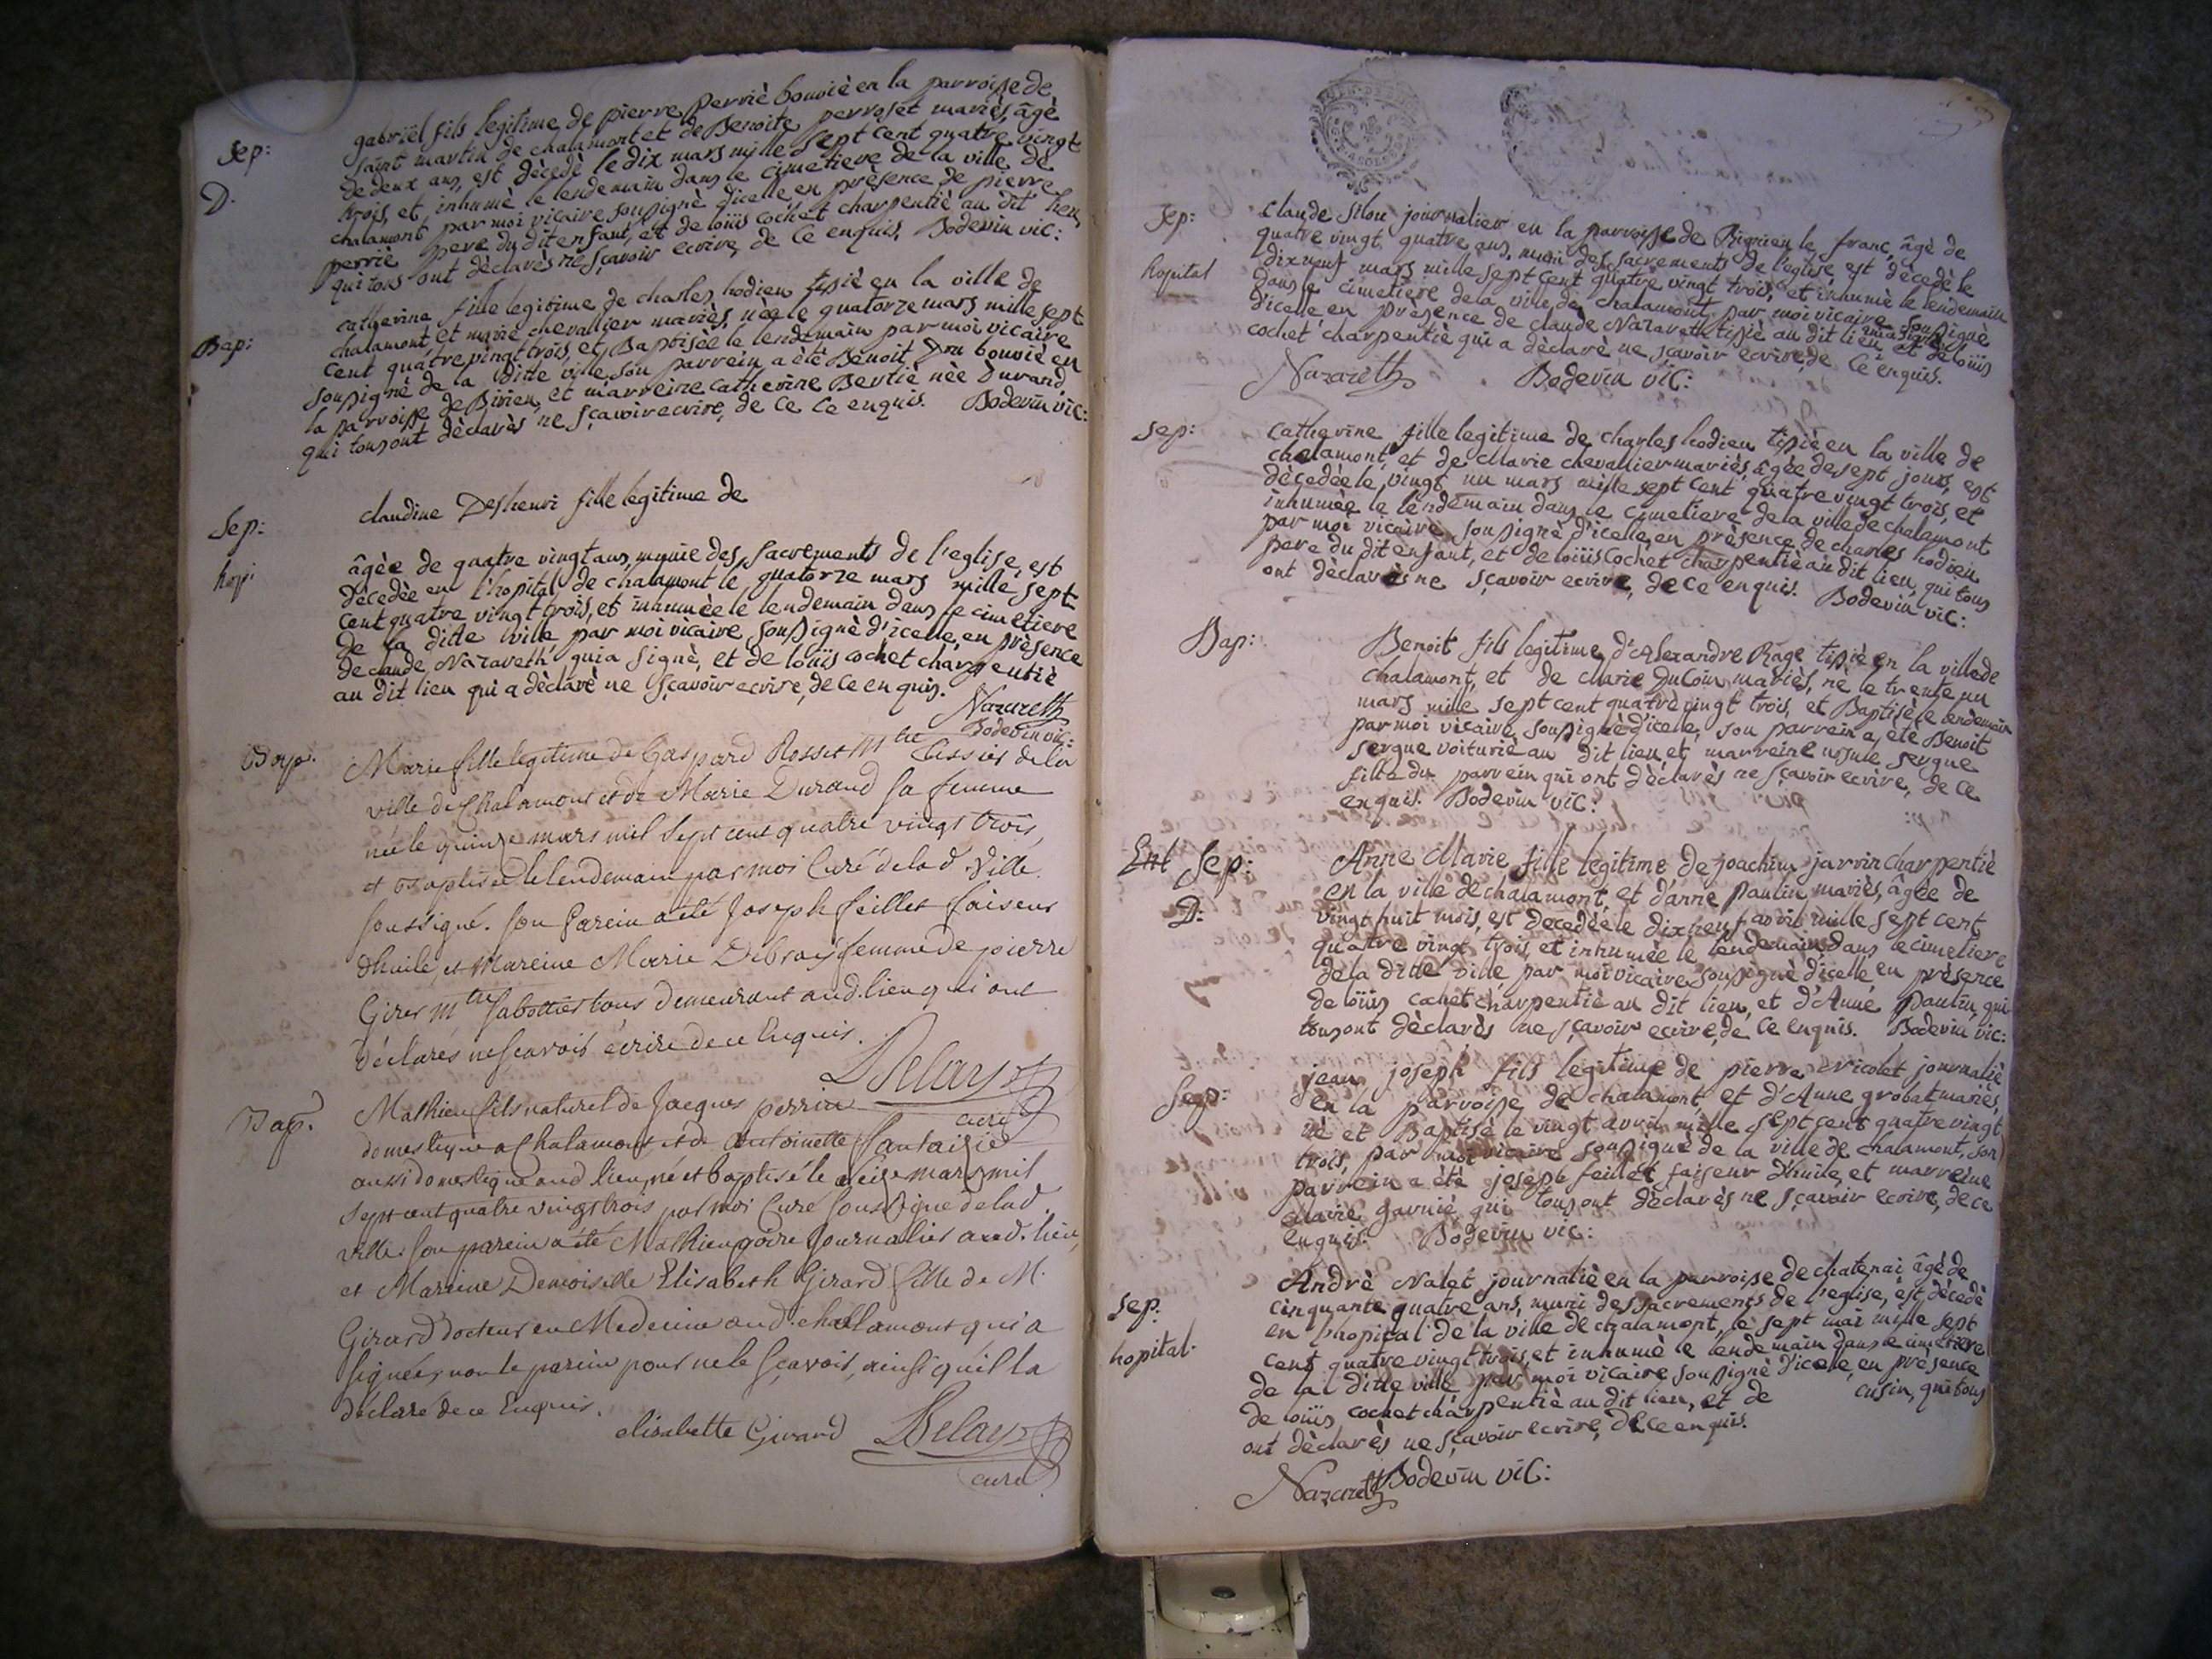 Sep:
D.
gabriël fils legitime de pierre perriè bouviè en la parroisse de
saint martin de chalamont et de Benoite perroset mariès, âgè
de deux ans, est dècedè le dix mars mille sept cent quatre vingt
trois, et inhumè le lendemain dans le cimetiere de la ville de
chalamont par moi vicaire soussignè d'icelle, en prèsence de pierre
perriè pere du dit enfant, et de loüis cochet charpentiè au dit lieu
qui tous ont dèclarès ne sçavoir ecrire, de ce enquis. Bodevin vic:
Bap:
catherine fille legitime de charles hodieu tissiè en la ville de
chalamont et marie chevallier mariès, nèe le quatorze mars mille sept
cent quatre vingt trois, et Baptisèe le lendemain par moi vicaire
soussignè de la ditte ville, son parrein a ètè Benoit Dru bouviè en
la parroisse de Birieu, et marreine catherine Bertiè nèe Durand,
qui tous ont dèclarès ne sçavoir ecrire, de ce ce enquis. Bodevin vic:
Sep:
hop:
claudine Deshenri fille legitime de
âgèe de quatre vingt ans, munie des sacrements de l'eglise, est
dècedèe en l'hopital de chalamont le quatorze mars mille sept
cent quatre vingt trois, et inhumèe le lendemain dans le cimetiere
de la ditte ville par moi vicaire soussignè d'icelle, en prèsence
de claude Nazareth qui a signè, et de loüis cochet charpentiè
au dit lieu qui a dèclarè ne sçavoir ecrire, de ce enquis.
Nazareth
Bodevin vic:
Bap.
Marie fille legitime de Gaspard Rosset Mtre Tissier de la
ville de Chalamont et de Marie Durand sa femme
née le quinze mars mil sept cent quatre vingt trois,
et Baptisée le lendemain par moi Curé de lad. Ville
soussigné. son Parein a été Joseph feillet faiseur
d'huile, et Mareine Marie Debray femme de pierre
Giret Mtre sabottier tous demeurant aud. lieu qui ont
déclarés ne sçavoir écrire de ce Enquis.
Delay
curé
Bap.
Mathieu fils naturel de Jacques perrin
domestique a Chalamont et de Antoinette fantaizie
aussi domestique aud. lieu, né et baptisé le seize mars mil
sept cent quatre vingt trois par moi Curé soussigné de lad.
ville. son parein a été Mathieu goire Journalier aud. lieu,
et Mareine Demoiselle Elisabeth Girard fille de M.
Girard docteur en Medecine aud. challamont qui a
signée, non le parein pour ne le sçavoir, ainsi qu'il l'a
déclaré de ce Enquis.
elisabette Girard Delay
curé
Sep:
hopital
claude silou journalier en la parroisse de Rignieu le franc, âgè de
quatre vingt quatre ans, muni des sacrements de l'eglise, est dècedè le
dixneuf mars mille sept cent quatre vingt trois, et inhumè le lendemain
dans le cimetiere de la ville de chalamont, par moi vicaire soussignè
d'icelle en prèsence de claude Nazareth tissiè au dit lieu qui a signè et de loüis
cochet charpentiè qui a dèclarè ne sçavoir ecrire, de ce enquis.
Nazareth Bodevin vic:
Sep:
catherine fille legitime de charles hodieu tissiè en la ville de
chalamont, et de Marie chevallier mariès, âgèe de sept jours, est
dècedèe le vingt un mars mille sept cent quatre vingt trois, et
inhumèe le lendemain dans le cimetiere de la ville de chalamont
par moi vicaire soussignè d'icelle, en prèsence de charles hodieu
pere du dit enfant, et de loüis cochet charpentiè au dit lieu, qui tous
ont dèclarès ne sçavoir ecrire, de ce enquis. Bodevin vic:
Bap:
Benoit fils legitime d'Alexandre Rage tissiè en la ville de
chalamont, et de Marie DuCoin mariès, nè le trente un
mars mille sept cent quatre vingt trois, et Baptisè le lendemain
par moi vicaire soussignè d'icelle, son parrein a ètè Benoit
sergue voituriè au dit lieu, et marreine ursule sergue
fille du parrein qui ont dèclarès ne sçavoir ecrire, de ce
enquis. Bodevin vic:
Ent Sep:
D:
Anne Marie fille legitime de joachim jarrin charpentiè
en la ville de chalamont, et d'anne paulin mariès, âgèe de
vingt huit mois, est decedèe le dixneuf avril mille sept cent
quatre vingt trois, et inhumèe le lendemain dans le cimetiere
de la ditte ville, par moi vicaire soussignè d'icelle, en prèsence
de loüis cochet charpentiè au dit lieu, et d'Anne paulin, qui
tous ont dèclarès ne sçavoir ecrire, de ce enquis. Bodevin vic:
Sep:
jean joseph fils legitime de pierre vricolet journaliè
en la parroisse de chalamont, et d'Anne grobat mariès,
nè et Baptisè le vingt avril mille sept cent quatre vingt
trois, par moi vicaire soussignè de la ville de chalamont, son
parrein a ètè joseph feillet faiseur d'huile, et marreine
Marie garniè qui tous ont dèclarès ne sçavoir ecrire, de ce
enquis. Bodevin vic:
Sep.
hopital.
Andrè Nalet journaliè en la parroisse de chatenai âgè de
cinquante quatre ans, muni des sacrements de l'eglise, est dècedè
en l'hopital de la ville de chalamont, le sept mai mille sept
cent quatre vingt trois, et inhumè le lendemain dans le cimetiere
de la ditte ville par moi vicaire soussignè d'icelle, en prèsence
de loüis cochet charpentiè au dit lieu, et de cusin, qui tous
ont dèclarès ne sçavoir ecrire, de ce enquis.
Nazareth Bodevin vic: